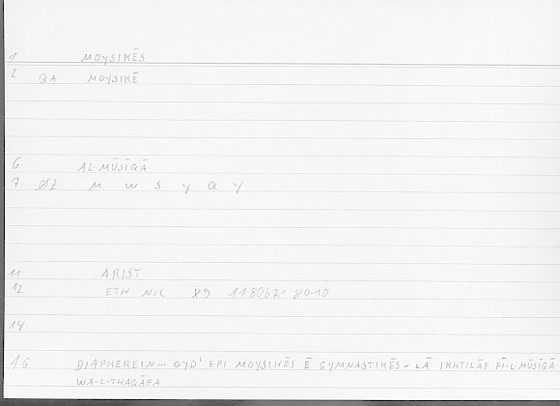 1 MOYSIKĒS
2 QA MOYSIKĒ
6 AL-MŪSĪQĀ
7 ØZ M W S Y Q Y
11 ARIST
12 ETH NIC X9 1180b2 = 80.10
14
16 DIAPHEREIN... OYD' EPI MOYSIKĒS Ē GYMNASTIKĒS = LĀ IKHTILĀF FĪ-L-MŪSĪQĀ
WA-L-THAQĀFA